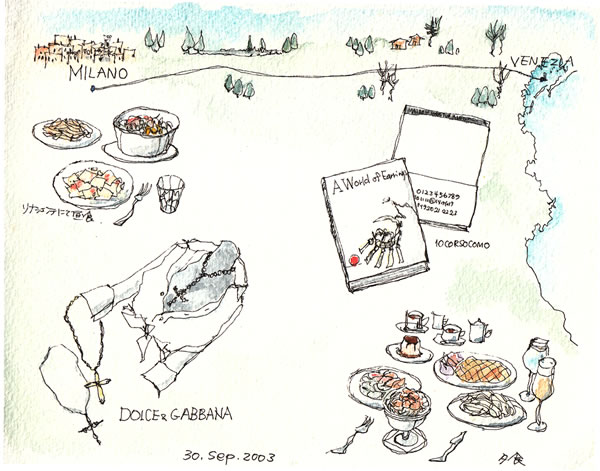 MILANO
VENEZIA
リナシェンテにて昼食
A World of Earrings
0123456789
10CORSOCOMO
DOLCE & GABBANA
30. Sep. 2003
夕食